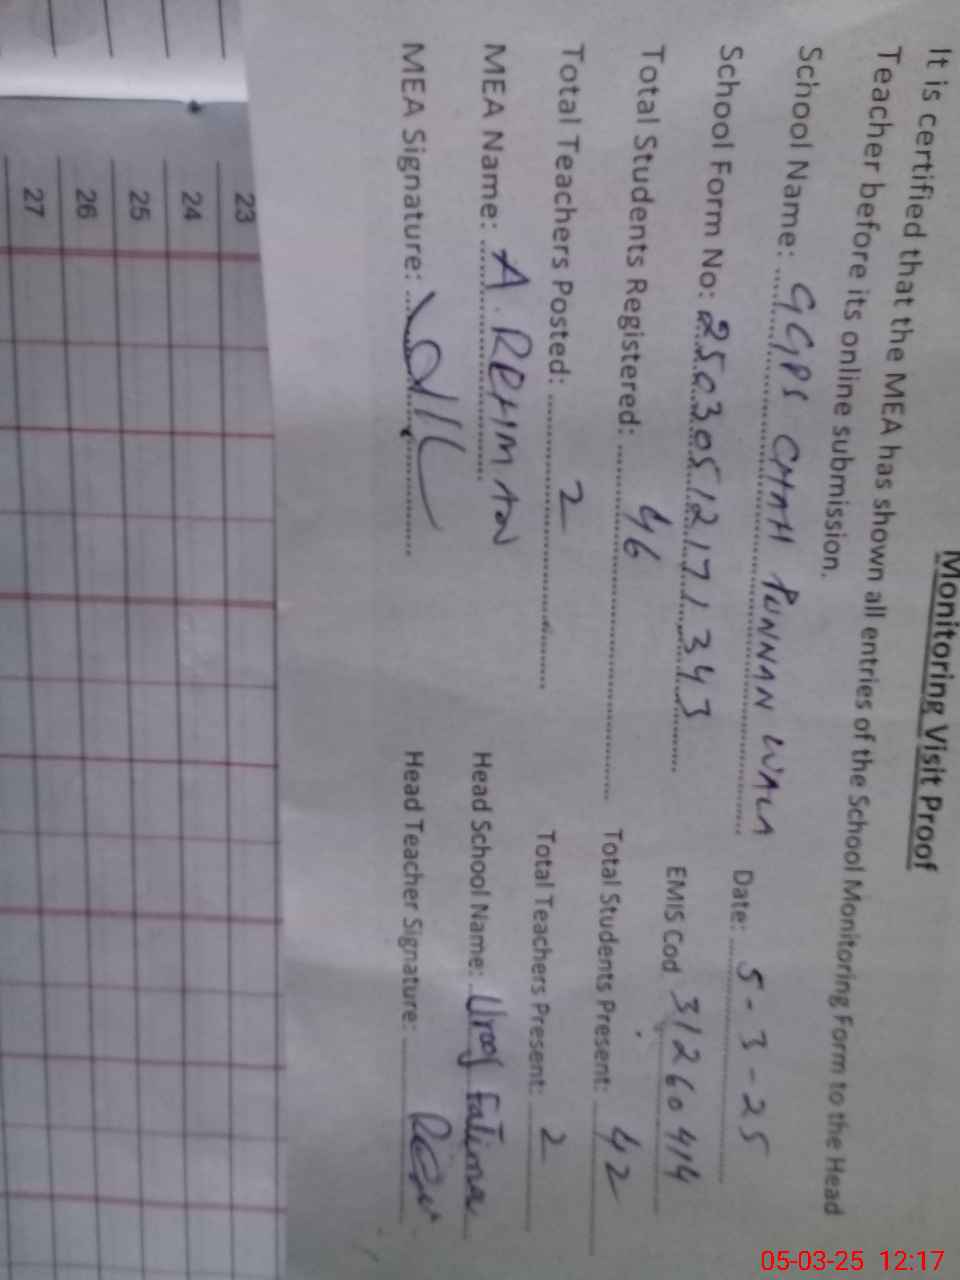 Monitoring Visit Proof
It is certified that the MEA has shown all entries of the School Monitoring Form to the Head
Teacher before its online submission.
School Name: GGPS CHAH PUNNAN WALA Date: 5-3-25
School Form No: 25030512171343 EMIS Cod 31260414
Total Students Registered: 46 Total Students Present: 42
Total Teachers Posted: 2 Total Teachers Present: 2
MEA Name: A. REHMAN Head School Name: Urooj Fatima
MEA Signature: Head Teacher Signature:
23
24
25
26
27
05-03-25 12:17